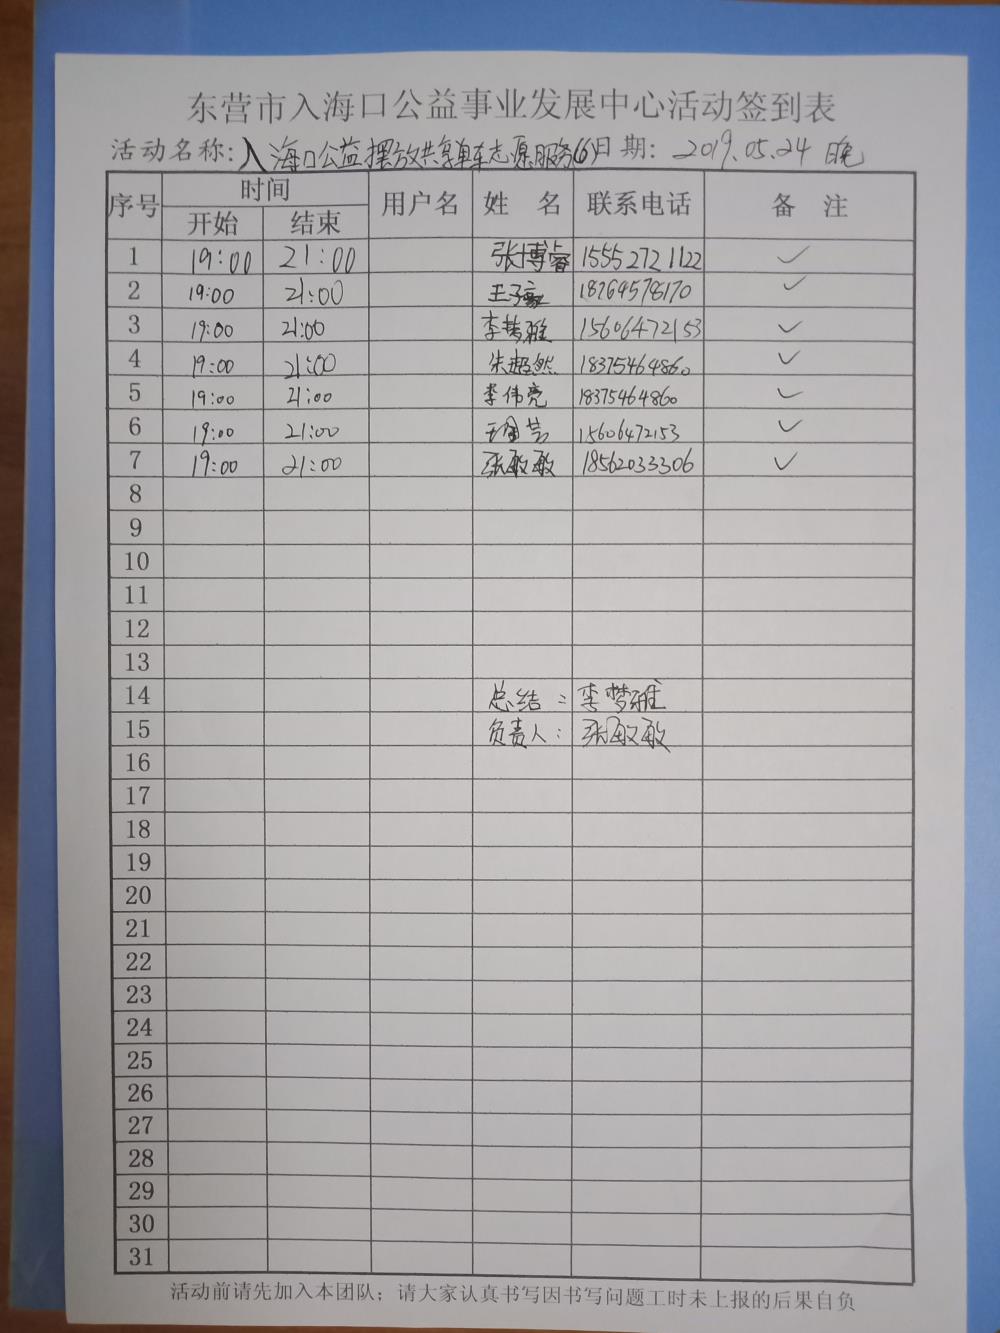 东营市入海口公益事业发展中心活动签到表
活动名称:入海口公益摆放共享单车志愿服务(6) 日期: 2019.05.24 晚
序号 时间 用户名 姓 名 联系电话 备 注
开始 结束
1 19:00 21:00 张博睿 15552721122 ✓
2 19:00 21:00 王子豪 18764578170 ✓
3 19:00 21:00 李梦雅 15606472153 ✓
4 19:00 21:00 朱超然 18375464860 ✓
5 19:00 21:00 李伟亮 18375464860 ✓
6 19:00 21:00 15606472153 ✓
7 19:00 21:00 张敏敏 18562033306 ✓
8
9
10
11
12
13
14 总结: 李梦雅
15 负责人: 张敏敏
16
17
18
19
20
21
22
23
24
25
26
27
28
29
30
31
活动前请先加入本团队;请大家认真书写因书写问题工时未上报的后果自负